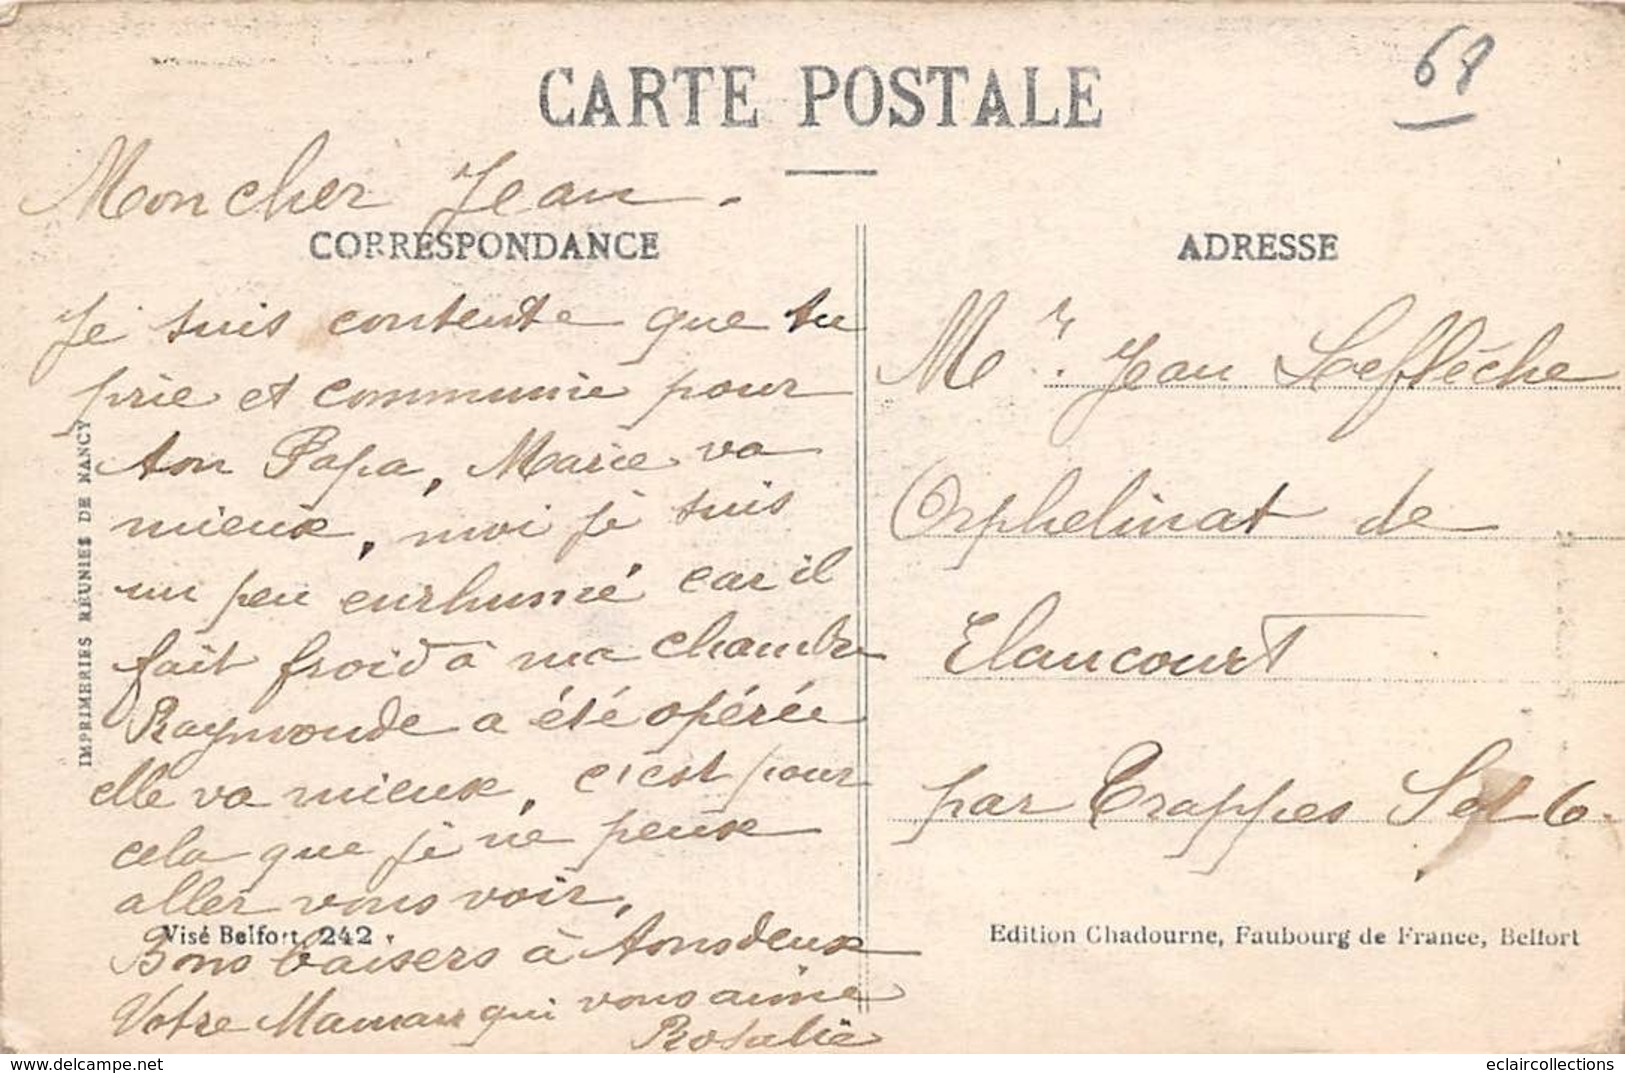 CARTE POSTALE
68
Mon cher Jean.
CORRESPONDANCE
Je suis contente que tu
prie et communie pour
ton Papa, Marie va
mieux, moi je suis
un peu enrhumé car il
fait froid à ma chambre
Raymonde a été opérée
elle va mieux, c'est pour
cela que je ne peux
aller vous voir,
Bons baisers à tous deux
Votre Maman qui vous aime
Rosalie
IMPRIMERIES REUNIES DE NANCY
Visé Belfort 242
ADRESSE
Mr. Jean Leflèche
Orphelinat de
Elancourt
par Trappes S et O.
Edition Chadourne, Faubourg de France, Belfort
delcampe.net
eclaircollections